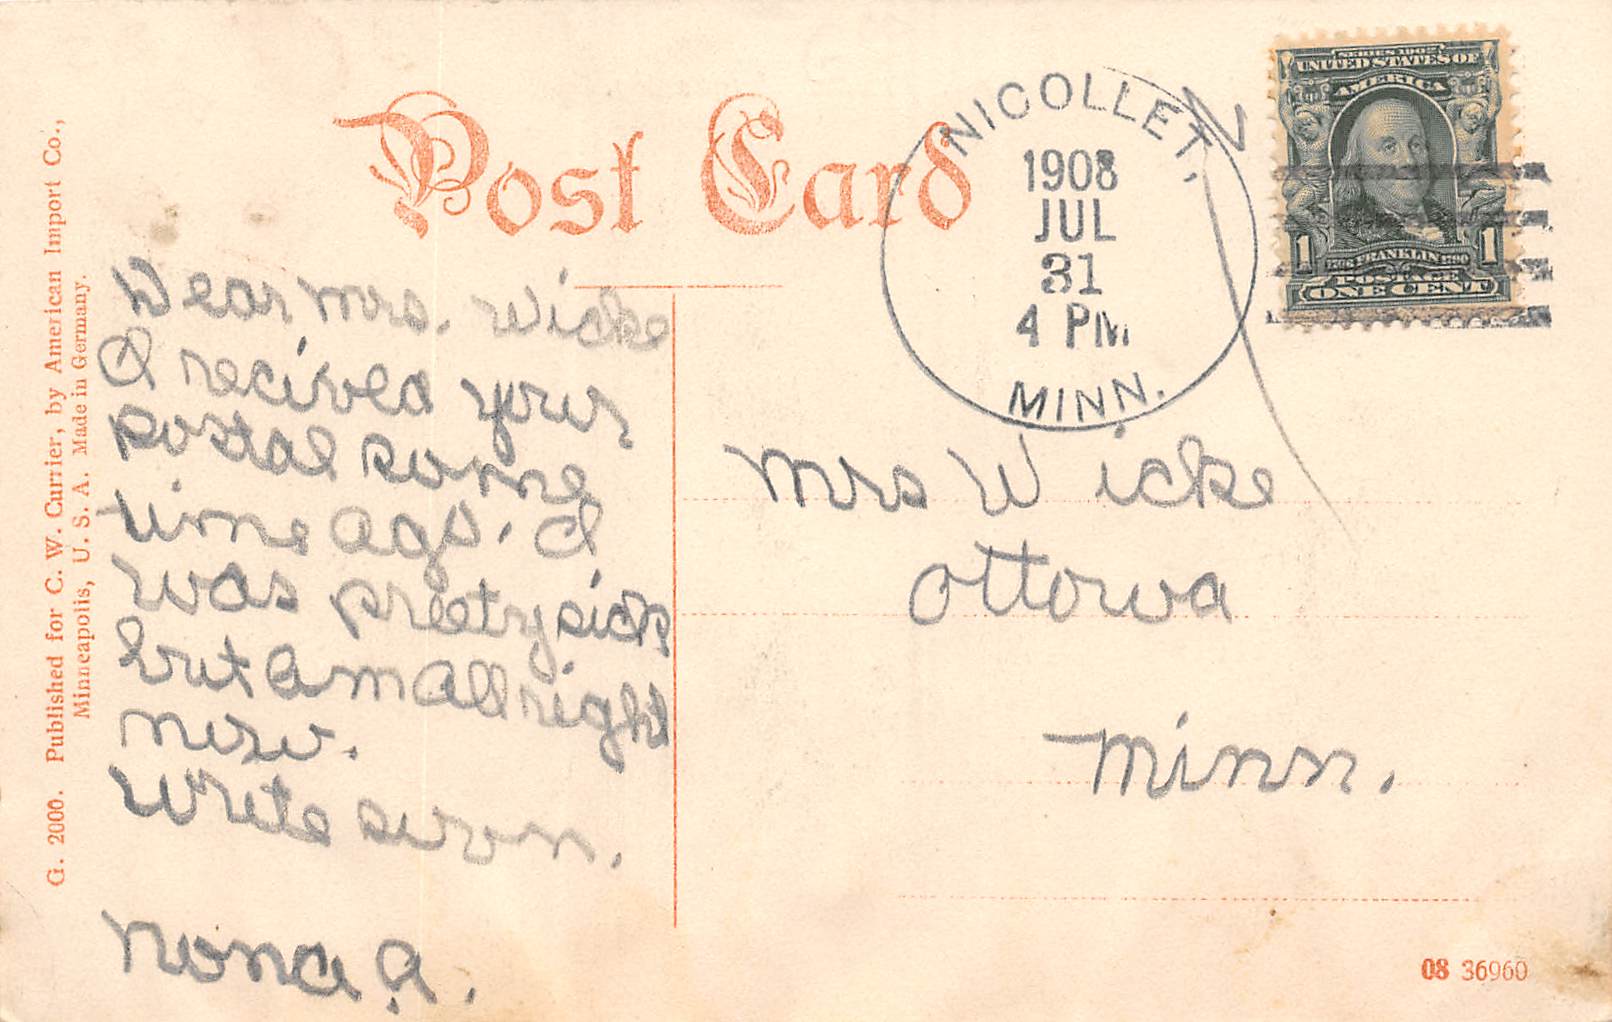 Post Card
G. 2000. Published for C. W. Currier, by American Import Co.,
Minneapolis, U. S. A. Made in Germany.
NICOLLET,
1908
JUL
31
4 PM
MINN.
SERIES 1902
UNITED STATES OF
AMERICA
1 1
1706 FRANKLIN 1790
POSTAGE
ONE CENT
Dear Mrs. Wicke
I recived your
postal some
time ago. I
was preety sick
but am all right
now.
Write soon.
Nona A.
Mrs Wicke
Ottowa
Minn.
08 36960